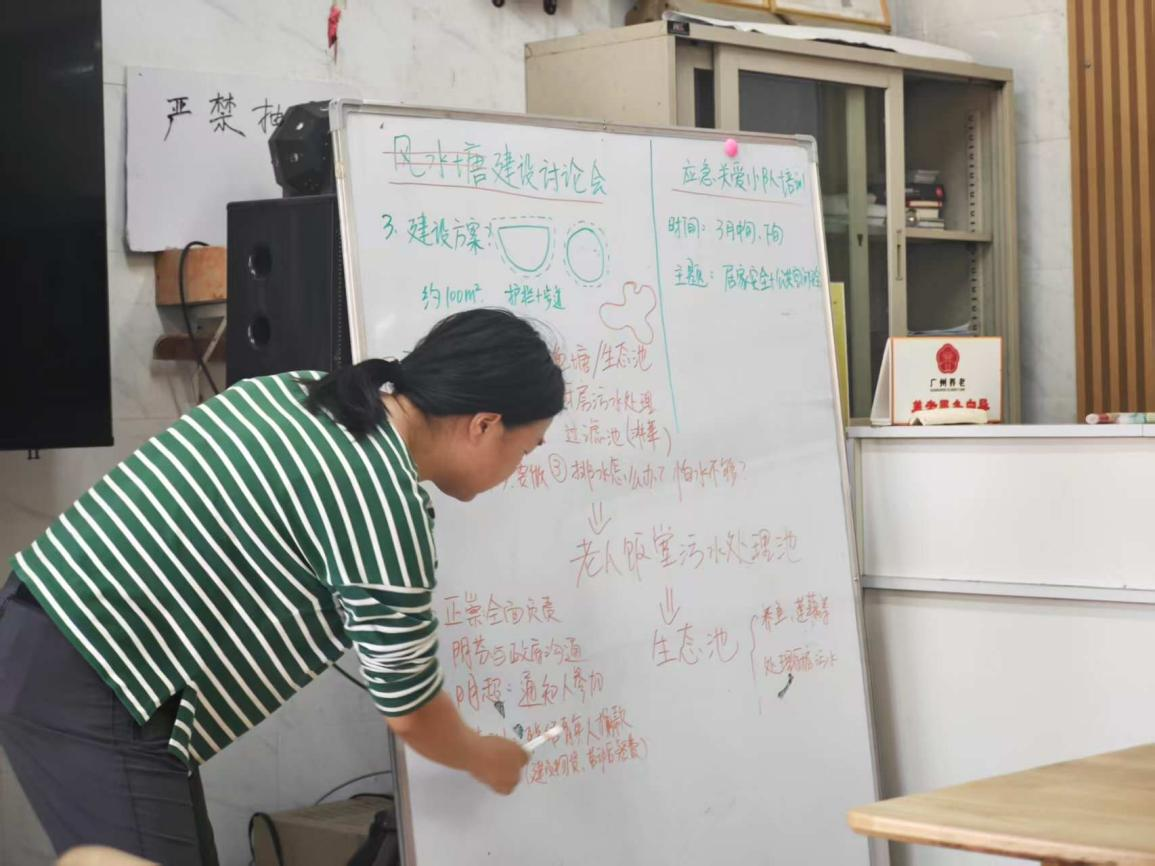 严禁
风水塘建设讨论会
3. 建设方案:
约100m². 护栏+步道
鱼塘/生态池
污水处理
过滤池(
要做 ③排水怎么办? 怕水不够?
⇓
老人饭堂污水处理池
⇓
生态池
养鱼、莲藕等
处理污水
正崇全面负责
明芬与政府沟通
明超:通知人参加
青年人捐款
应急关爱小队培训
时间: 3月中旬、下旬
主题: 居家安全+
广州养老